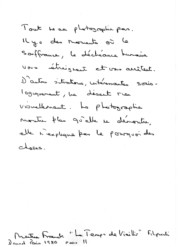 Tout ne se photographie pas.
Il y a des moments où la
souffrance, la déchéance humaine
vous étreignent et vous arrêtent.
D'autres situations, intéressantes socio-
logiquement, se disent non
visuellement. La photographie
montre plus qu'elle ne démontre,
elle n'explique pas le pourquoi des
choses.
Martine Franck "Le Temps de Vieillir"
Denoël Paris 1980